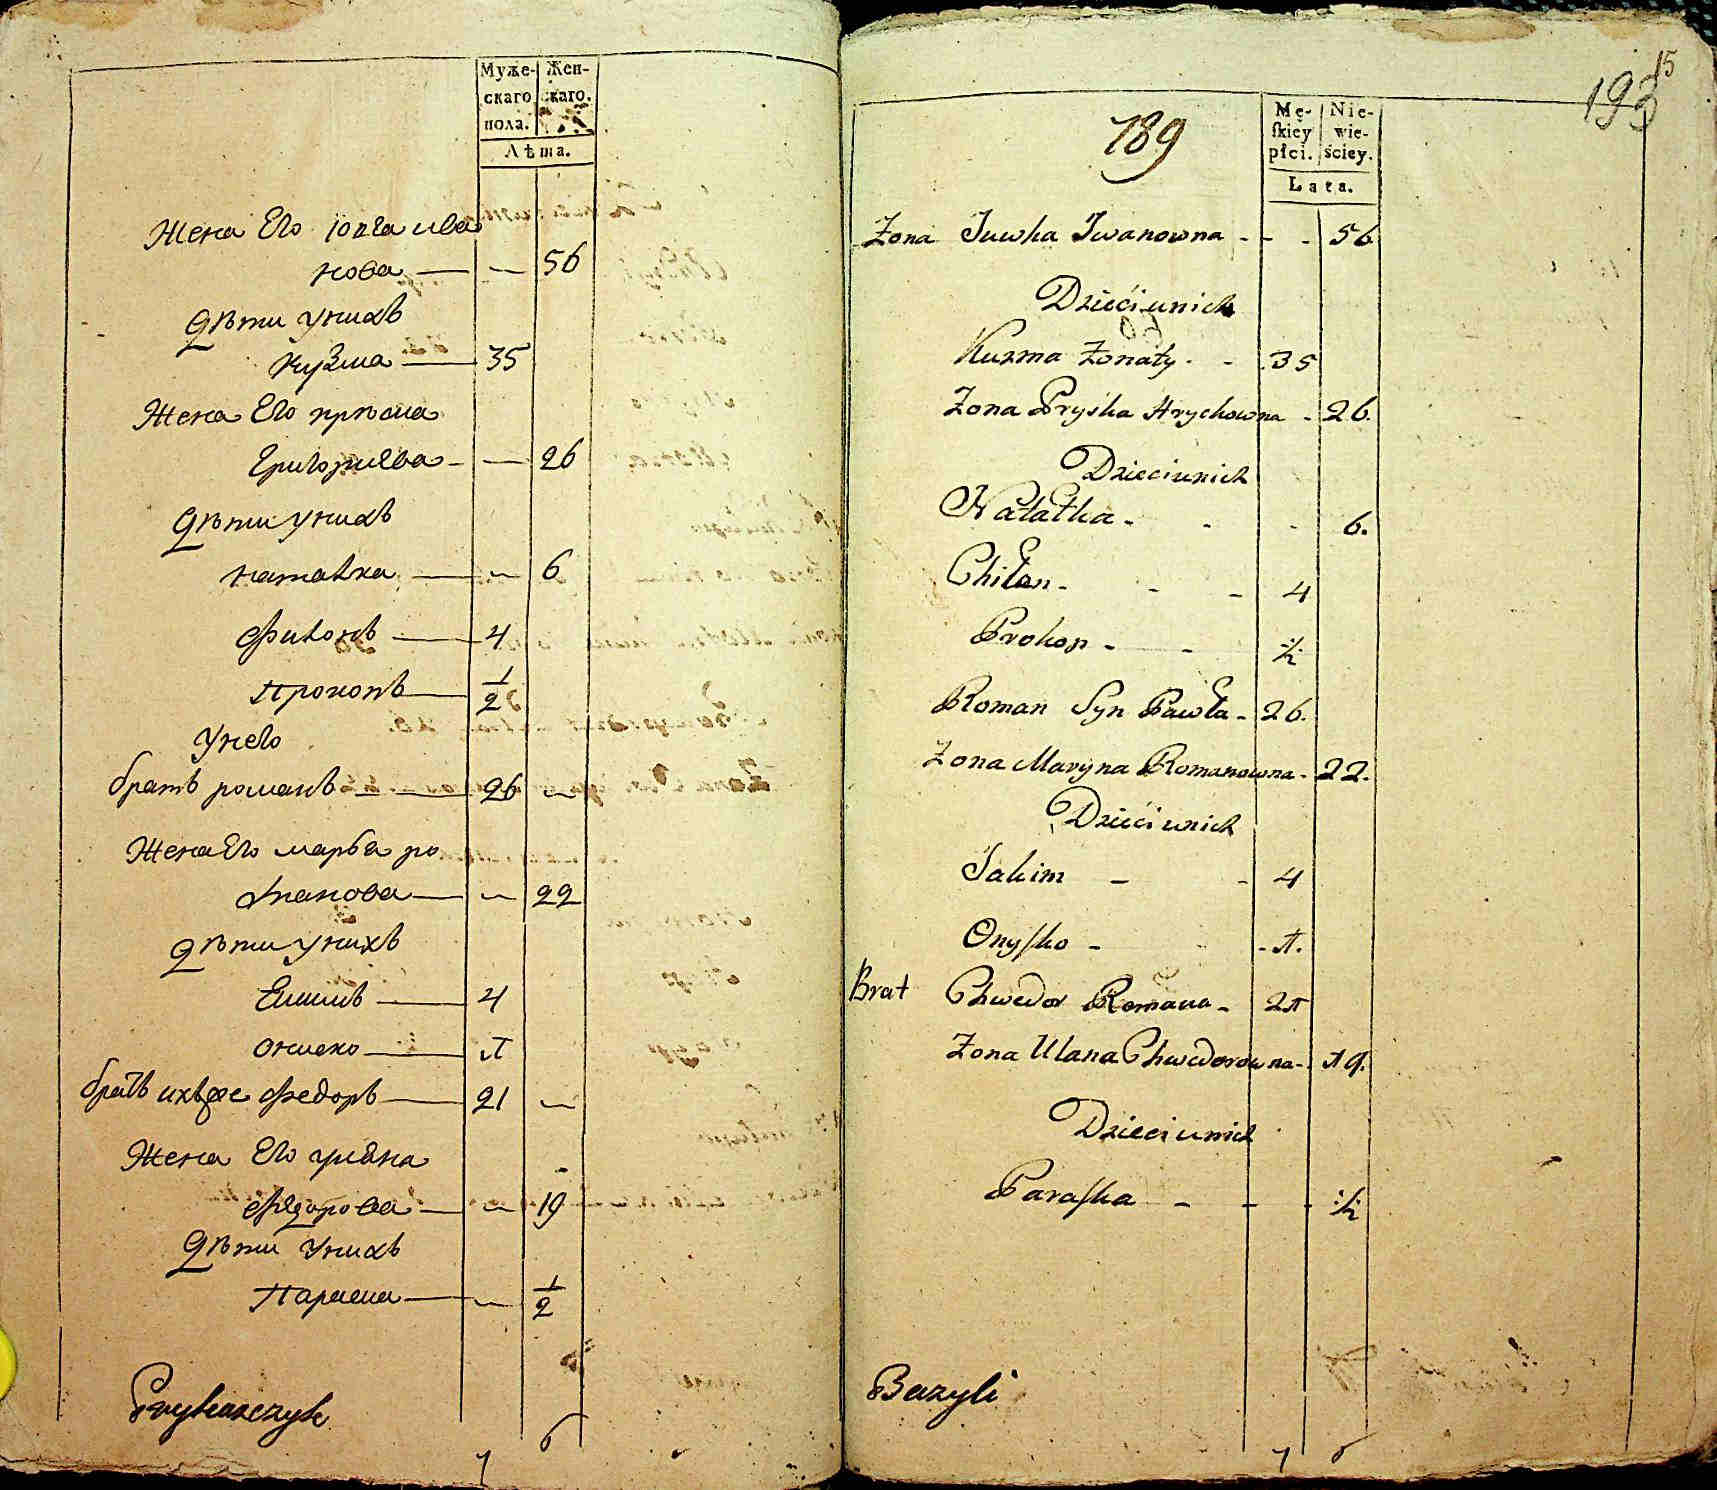 Муже-
скаго
пола.
Жен-
скаго.
Лѣта.
Жена Его Юлга ива
нова — — 56
Дѣти унихъ
кузма — 35
Жена Его прѣсиа
Григориева — — 26
Дѣти унихъ
наталка — — 6
Филонъ — 4
Прокопъ — 1/2
Унего
братъ романъ — 26 —
Жена Его марья ро
манова — — 22
Дѣти унихъ
Екимъ — 4
ониско — 1
братъ ихъже Федоръ — 21 —
Жена Его улияна
Федорова — — 19
Дѣти унихъ
Параска — — 1/2
Prykazczyk
7 6
193
15
789
Mę-
ſkiey
płci.
Nie-
wie-
ściey.
Lata.
Żona Juwka Iwanowna - - - 56
Dzieci unich
Kuzma Żonaty - - 35
Żona Pryśka Hrychowna - 26.
Dzieci unich
Natałka - - - 6.
Chiłon - - - 4
Prokop - - 1/2
Roman Syn Pawła - 26.
Żona Maryna Romanowna - 22.
Dzieci unich
Jakim - - 4
Onyſko - - 1.
Brat Chwedor Romana - 21
Żona Ulana Chwedorowna - 19.
Dzieci unich
Paraſka - - - 1/2
Bazyli
7 6